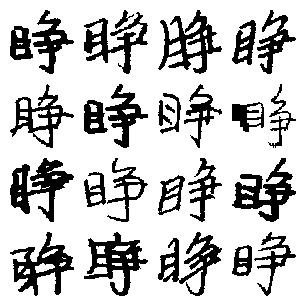 睁睁睁睁
睁睁睁睁
睁睁睁睁
睁睁睁睁